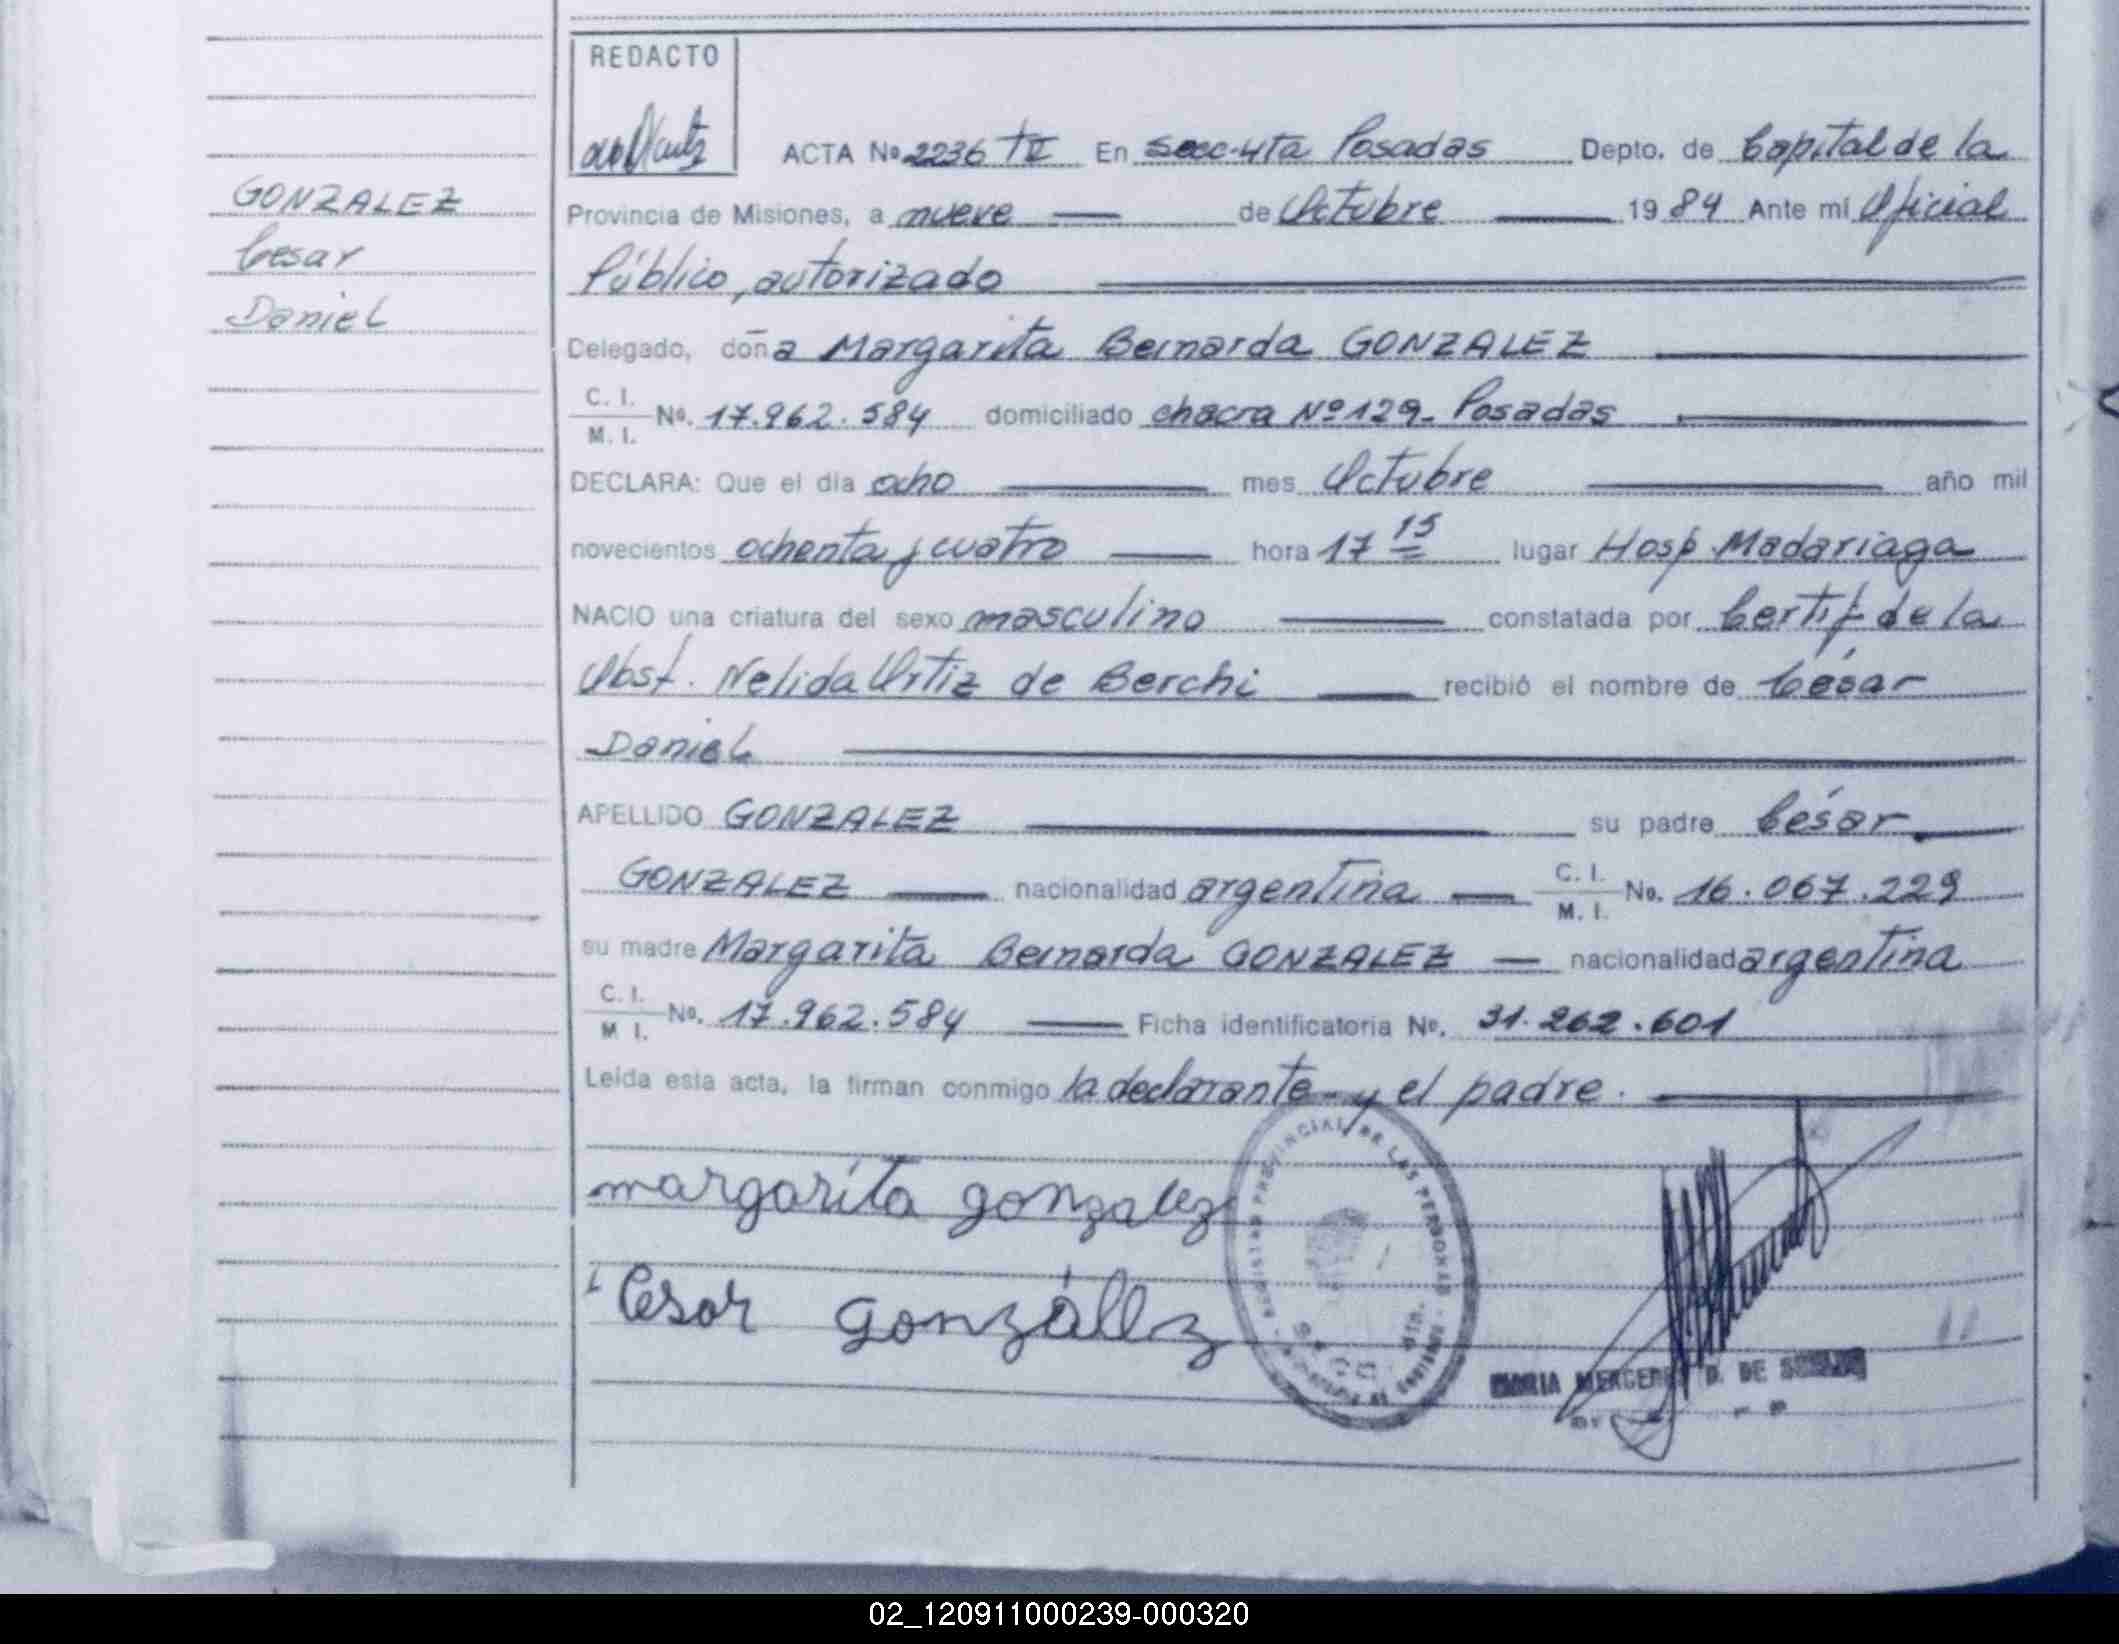 REDACTO
ACTA Nº 2236 tII En Secc. 4ta Posadas Depto. de Capital de la
GONZALEZ
Cesar
Daniel
Provincia de Misiones, a nueve de Octubre 1984 Ante mí Oficial
Público, autorizado
Delegado, doña Margarita Bernarda GONZALEZ
C. I. M. I. No. 17.962.584 domiciliado chacra Nº 129- Posadas
DECLARA: Que el día ocho mes Octubre año mil
novecientos ochenta y cuatro hora 17 15 lugar Hosp. Madariaga
NACIO una criatura del sexo masculino constatada por Certif de la
Obst. Nelida Ortiz de Berchi recibió el nombre de César
Daniel
APELLIDO GONZALEZ su padre César
GONZALEZ nacionalidad argentina C. I. M. I. No. 16.067.229
su madre Margarita Bernarda GONZALEZ nacionalidad argentina
C. I. M I. No. 17.962.584 Ficha identificatoria No. 31.262.601
Leída esta acta, la firman conmigo la declarante y el padre.
margarita gonzalez
Cesar gonzález
REGISTRO PROVINCIAL DE LAS PERSONAS
MARIA MERCEDES D. DE
02_120911000239-000320